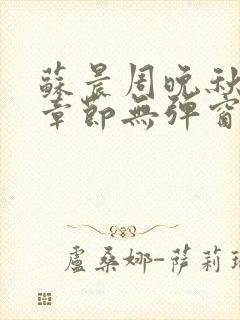 蘇晨周晚秋
章節無彈窗
盧桑娜-薩莉瑞